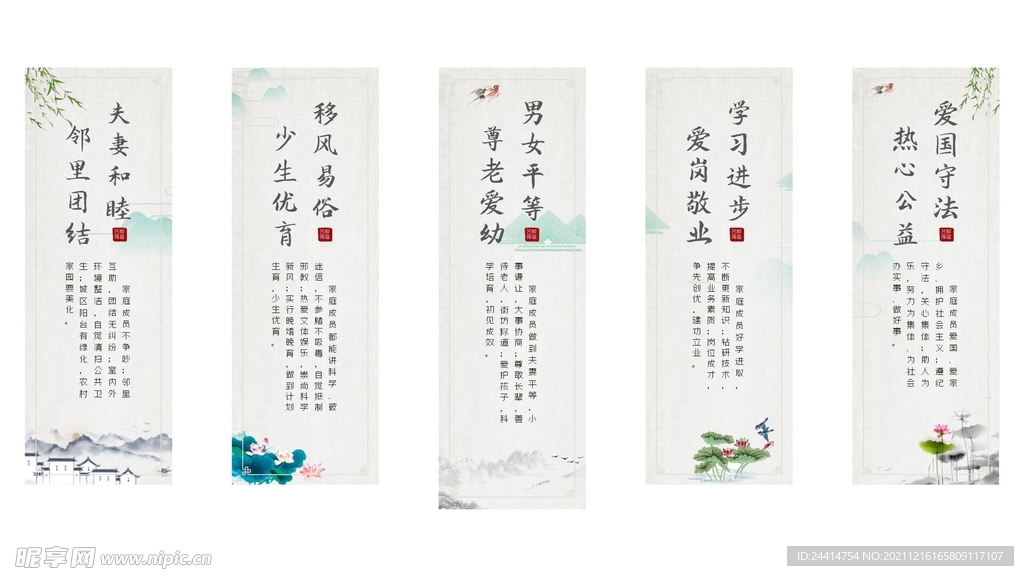 夫妻和睦
邻里团结
家庭成员不争吵；邻里
互助，团结无纠纷；室内外
环境整洁，自觉清扫公共卫
生；城区阳台有绿化，农村
家园要美化。
移风易俗
少生优育
家庭成员都能讲科学、破
迷信，不参赌不吸毒，自觉抵制
邪教；热爱文体娱乐，崇尚科学
新风；实行晚婚晚育，做到计划
生育，少生优育。
男女平等
尊老爱幼
家庭成员做到夫妻平等，小
事谦让，大事协商；尊敬长辈，善
待老人，街坊称道；爱护孩子，科
学培育，初见成效。
学习进步
爱岗敬业
家庭成员好学进取，
不断更新知识；钻研技术，
提高业务素质；岗位成才，
争先创优，建功立业。
爱国守法
热心公益
家庭成员爱国、爱家
乡、拥护社会主义；遵纪
守法，关心集体；助人为
乐，努力为集体、为社会
办实事、做好事。
昵享网 www.nipic.cn
ID:24414754 NO:20211216165809117107